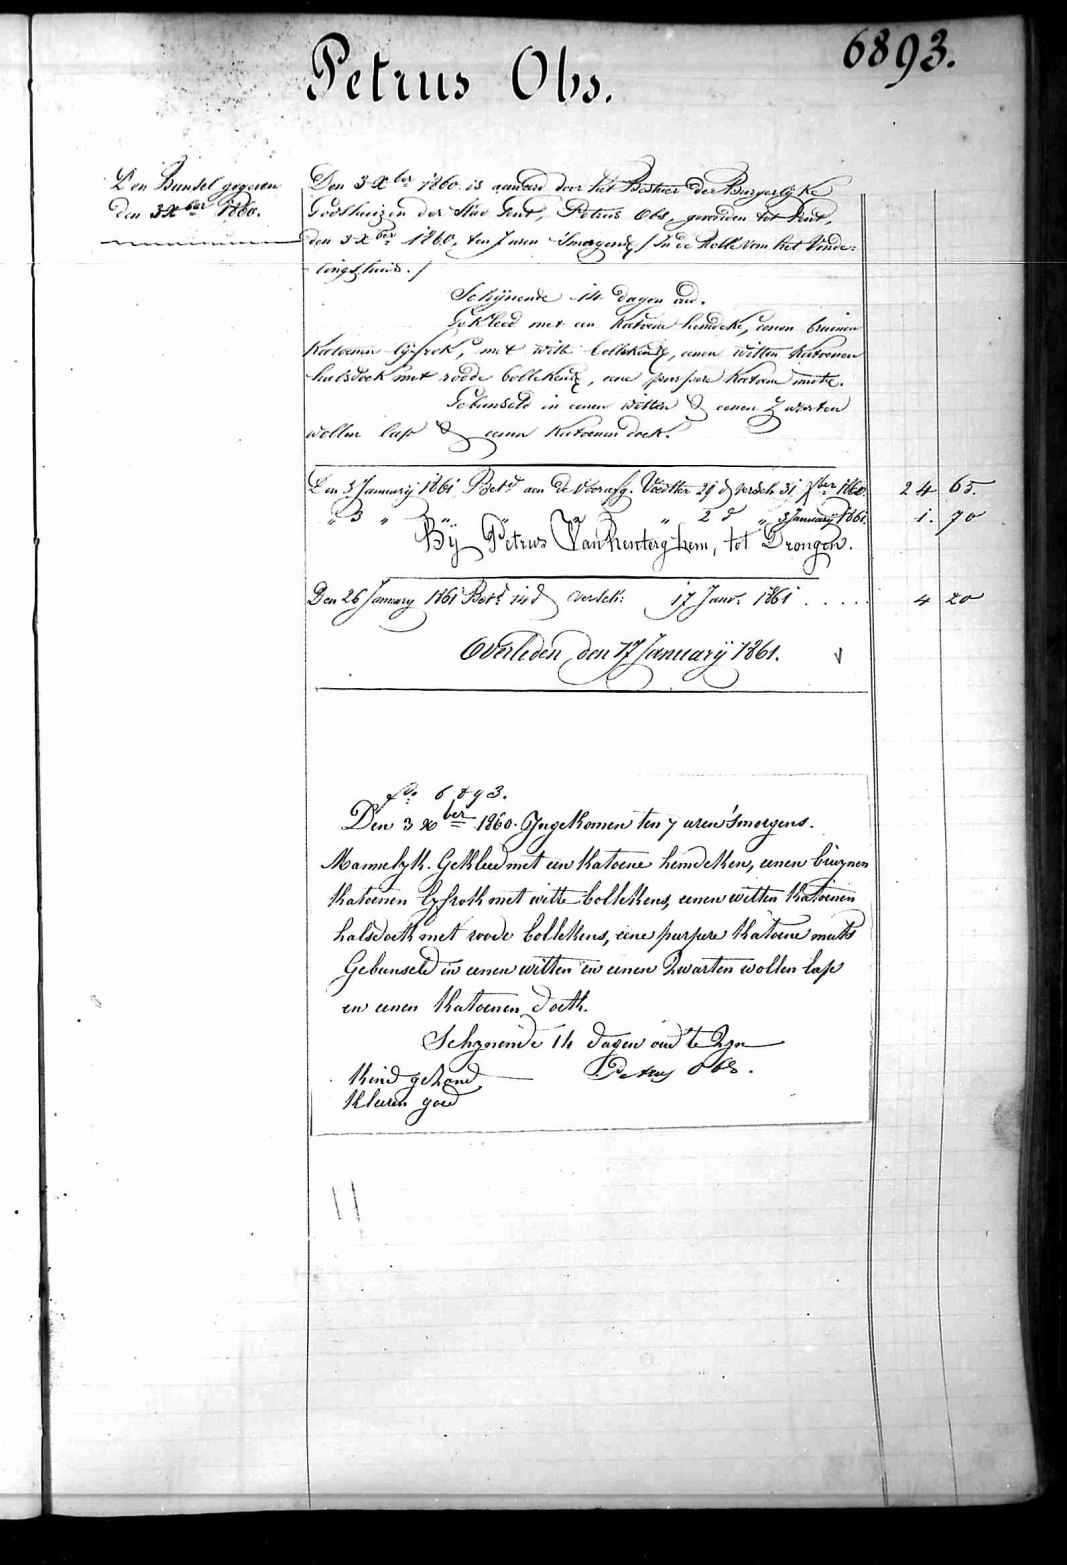 6893.
Petrus Obs.
Den Bunsel gegeven
den 3 Xber 1860.
Den 3 Xber 1860 is aanveerd door het Bestuer der Burgerlyke
Godshuizen der Stad Gent, Petrus Obs, gevonden tot Gent,
den 3 Xber 1860, ten 7 uren 'Smorgens, / In de Rolle van het Vonde-
lingshuis. /
Schijnende 14 dagen oud.
Gekleed met een Katoene hemdeke, eenen bruinen
Katoenen lyfrok, met witte bollekens, eenen witten Katoenen
halsdoek met roode bollekens, eene purpere Katoene muts.
Gebunseld in eenen witten & eenen zwarten
wollen lap & eenen Katoenen doek.
Den 3 January 1861 Betd aen de Voorafg. Voedster 29 d versch 31 Xber 1860. 24 65.
" 3 " " " " 2 d " 3 January 1861. 1. 70
Bÿ Petrus Van Renterghem, tot Drongen.
Den 26 January 1861 Betd 14 d versch: 17 Janr. 1861 . . . . . 4 20
Overleden den 17 Januarÿ 1861. V
fo. 6893.
Den 3 xber 1860. Ingekomen ten 7 uren 'smorgens.
Mannelyk. Gekleed met een katoene hemdeken, eenen bruynen
katoenen lyfrok met witte bollekens, eenen witten katoenen
halsdoek met roode bollekens, eene purpere katoene muts
Gebunseld in eenen witten en eenen zwarten wollen lap
en eenen katoenen doek.
Schynende 14 dagen oud te zyn
Kind gezond Petrus Obs.
Kleeren goed